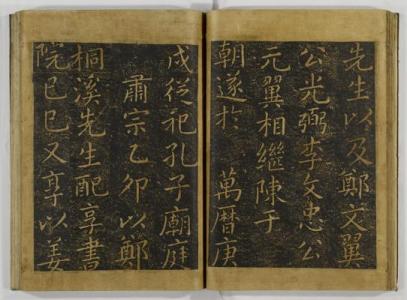 先生以及鄭文翼
公光弼李文忠公
元翼相繼陳于
朝遂於　萬曆庚
戌從祀孔子廟庭
肅宗乙卯以鄭
桐溪先生配享書
院己巳又享以姜